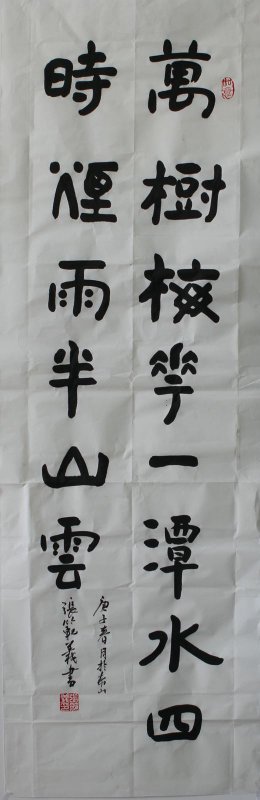 萬樹梅花一潭水四
時煙雨半山雲
庚子春月於泰山
張範義書